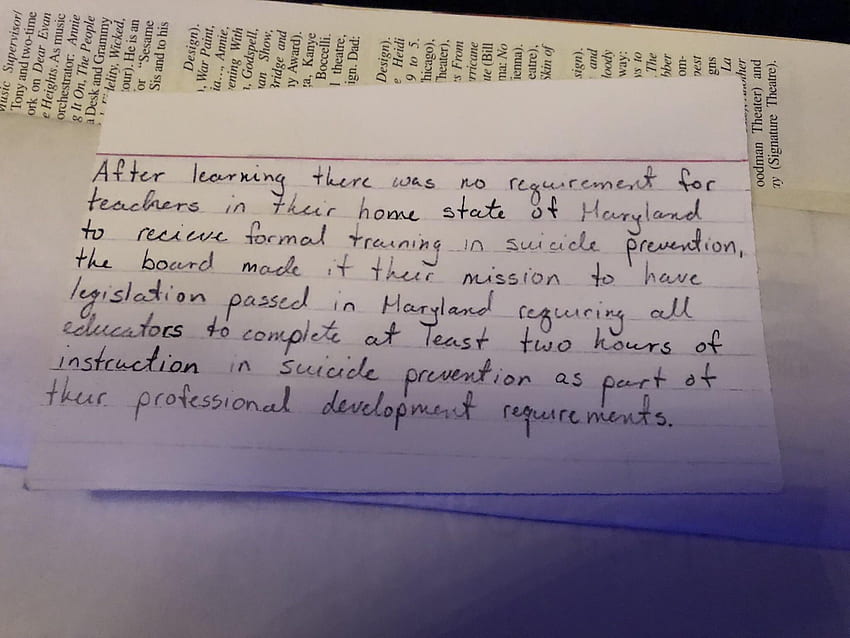 After learning there was no requirement for
teachers in their home state of Maryland
to recieve formal training in suicide prevention,
the board made it their mission to have
legislation passed in Maryland requiring all
educators to complete at least two hours of
instruction in suicide prevention as part of
their professional development requirements.
Music Supervisor/
Tony and two-time
ork on Dear Evan
e Heights. As music
orchestrator: Annie
g It On, The People
a Desk and Grammy
delity, Wicked,
our). He is an
or "Sesame
Sis and to his
Design).
, War Paint,
ia…, Annie,
vening With
, Godspell,
an Show,
Bridge and
y Award).
a, Kanye
Bocelli.
l theatre,
ign. Dad:
Design).
e Heidi
9 to 5.
hicago),
Theater),
s From
rricane
ute (Bill
ma: No
ienna).
eatre),
Skin of
sign).
and
loody
way:
ys to
The
bber
om-
pest
gns
La
nother
oodman Theater) and
ry (Signature Theatre).